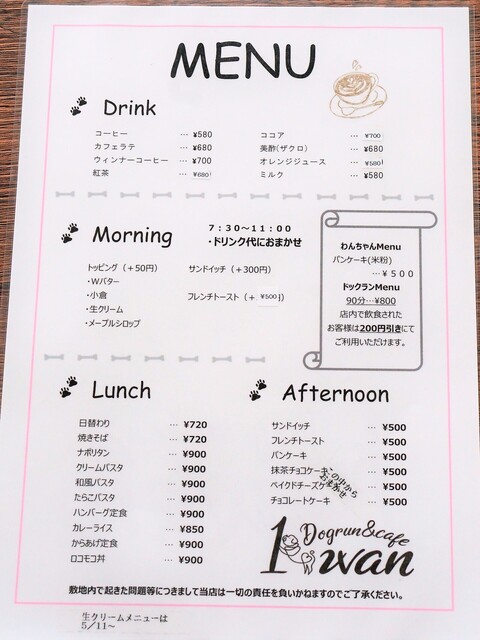 MENU
Drink
コーヒー … ¥580
カフェラテ … ¥680
ウィンナーコーヒー … ¥700
紅茶 … ¥680
ココア … ¥700
美酢(ザクロ) … ¥680
オレンジジュース … ¥580
ミルク … ¥580
Morning
7：30～11：00
・ドリンク代におまかせ
トッピング（＋50円）
・Wバター
・小倉
・生クリーム
・メープルシロップ
サンドイッチ（＋300円）
フレンチトースト（＋ ¥500 )
わんちゃんMenu
パンケーキ(米粉)
…¥５００
ドックランMenu
90分…¥800
店内で飲食された
お客様は200円引きにて
ご利用いただけます。
Lunch
日替わり … ¥720
焼きそば … ¥720
ナポリタン … ¥900
クリームパスタ … ¥900
和風パスタ … ¥900
たらこパスタ … ¥900
ハンバーグ定食 … ¥900
カレーライス … ¥850
からあげ定食 … ¥900
ロコモコ丼 … ¥900
Afternoon
サンドイッチ … ¥500
フレンチトースト … ¥500
パンケーキ … ¥500
抹茶チョコケーキ ¥500
ベイクドチーズケ … ¥500
チョコレートケーキ … ¥500
この中から
おまかせ
Dogrun&cafe
1wan
敷地内で起きた問題等につきまして当店は一切の責任を負いかねますのでご了承ください。
生クリームメニューは
5／11～